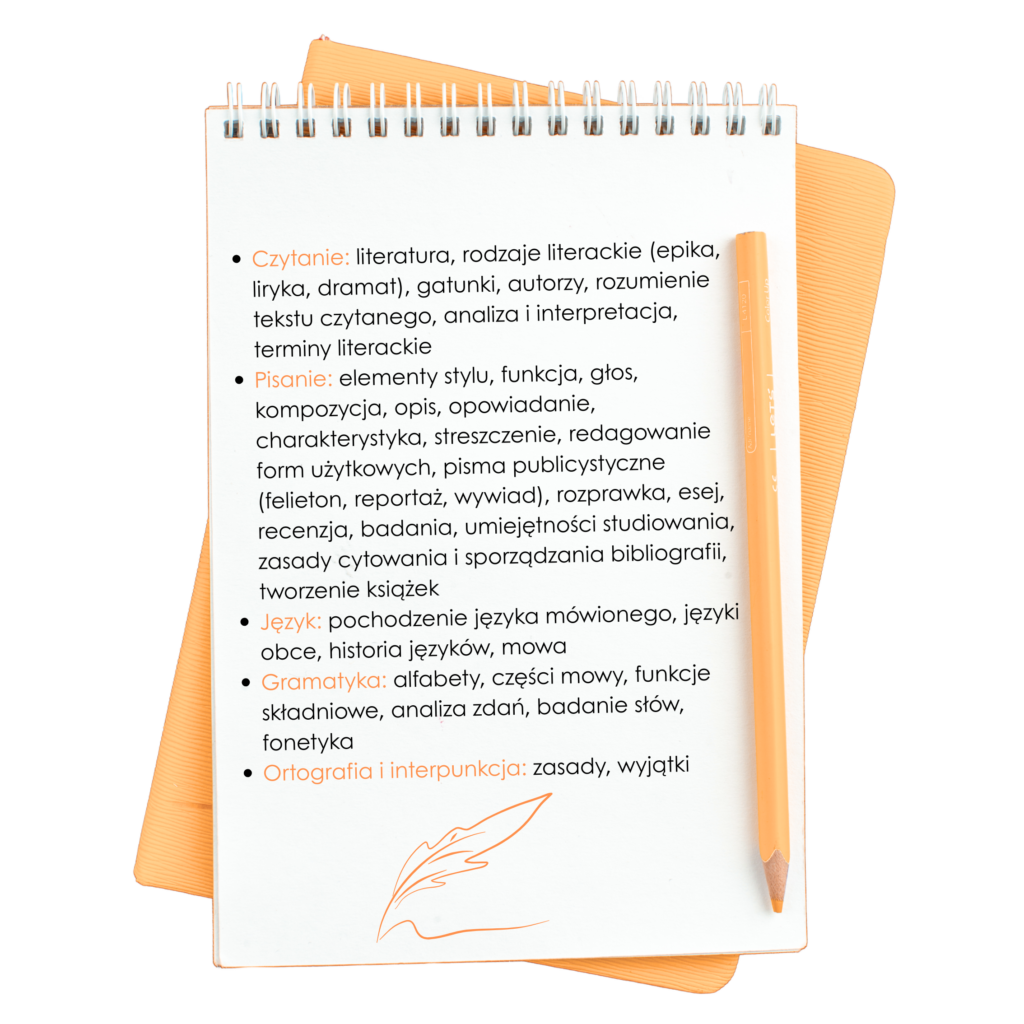 • Czytanie: literatura, rodzaje literackie (epika,
liryka, dramat), gatunki, autorzy, rozumienie
tekstu czytanego, analiza i interpretacja,
terminy literackie
• Pisanie: elementy stylu, funkcja, głos,
kompozycja, opis, opowiadanie,
charakterystyka, streszczenie, redagowanie
form użytkowych, pisma publicystyczne
(felieton, reportaż, wywiad), rozprawka, esej,
recenzja, badania, umiejętności studiowania,
zasady cytowania i sporządzania bibliografii,
tworzenie książek
• Język: pochodzenie języka mówionego, języki
obce, historia języków, mowa
• Gramatyka: alfabety, części mowy, funkcje
składniowe, analiza zdań, badanie słów,
fonetyka
• Ortografia i interpunkcja: zasady, wyjątki